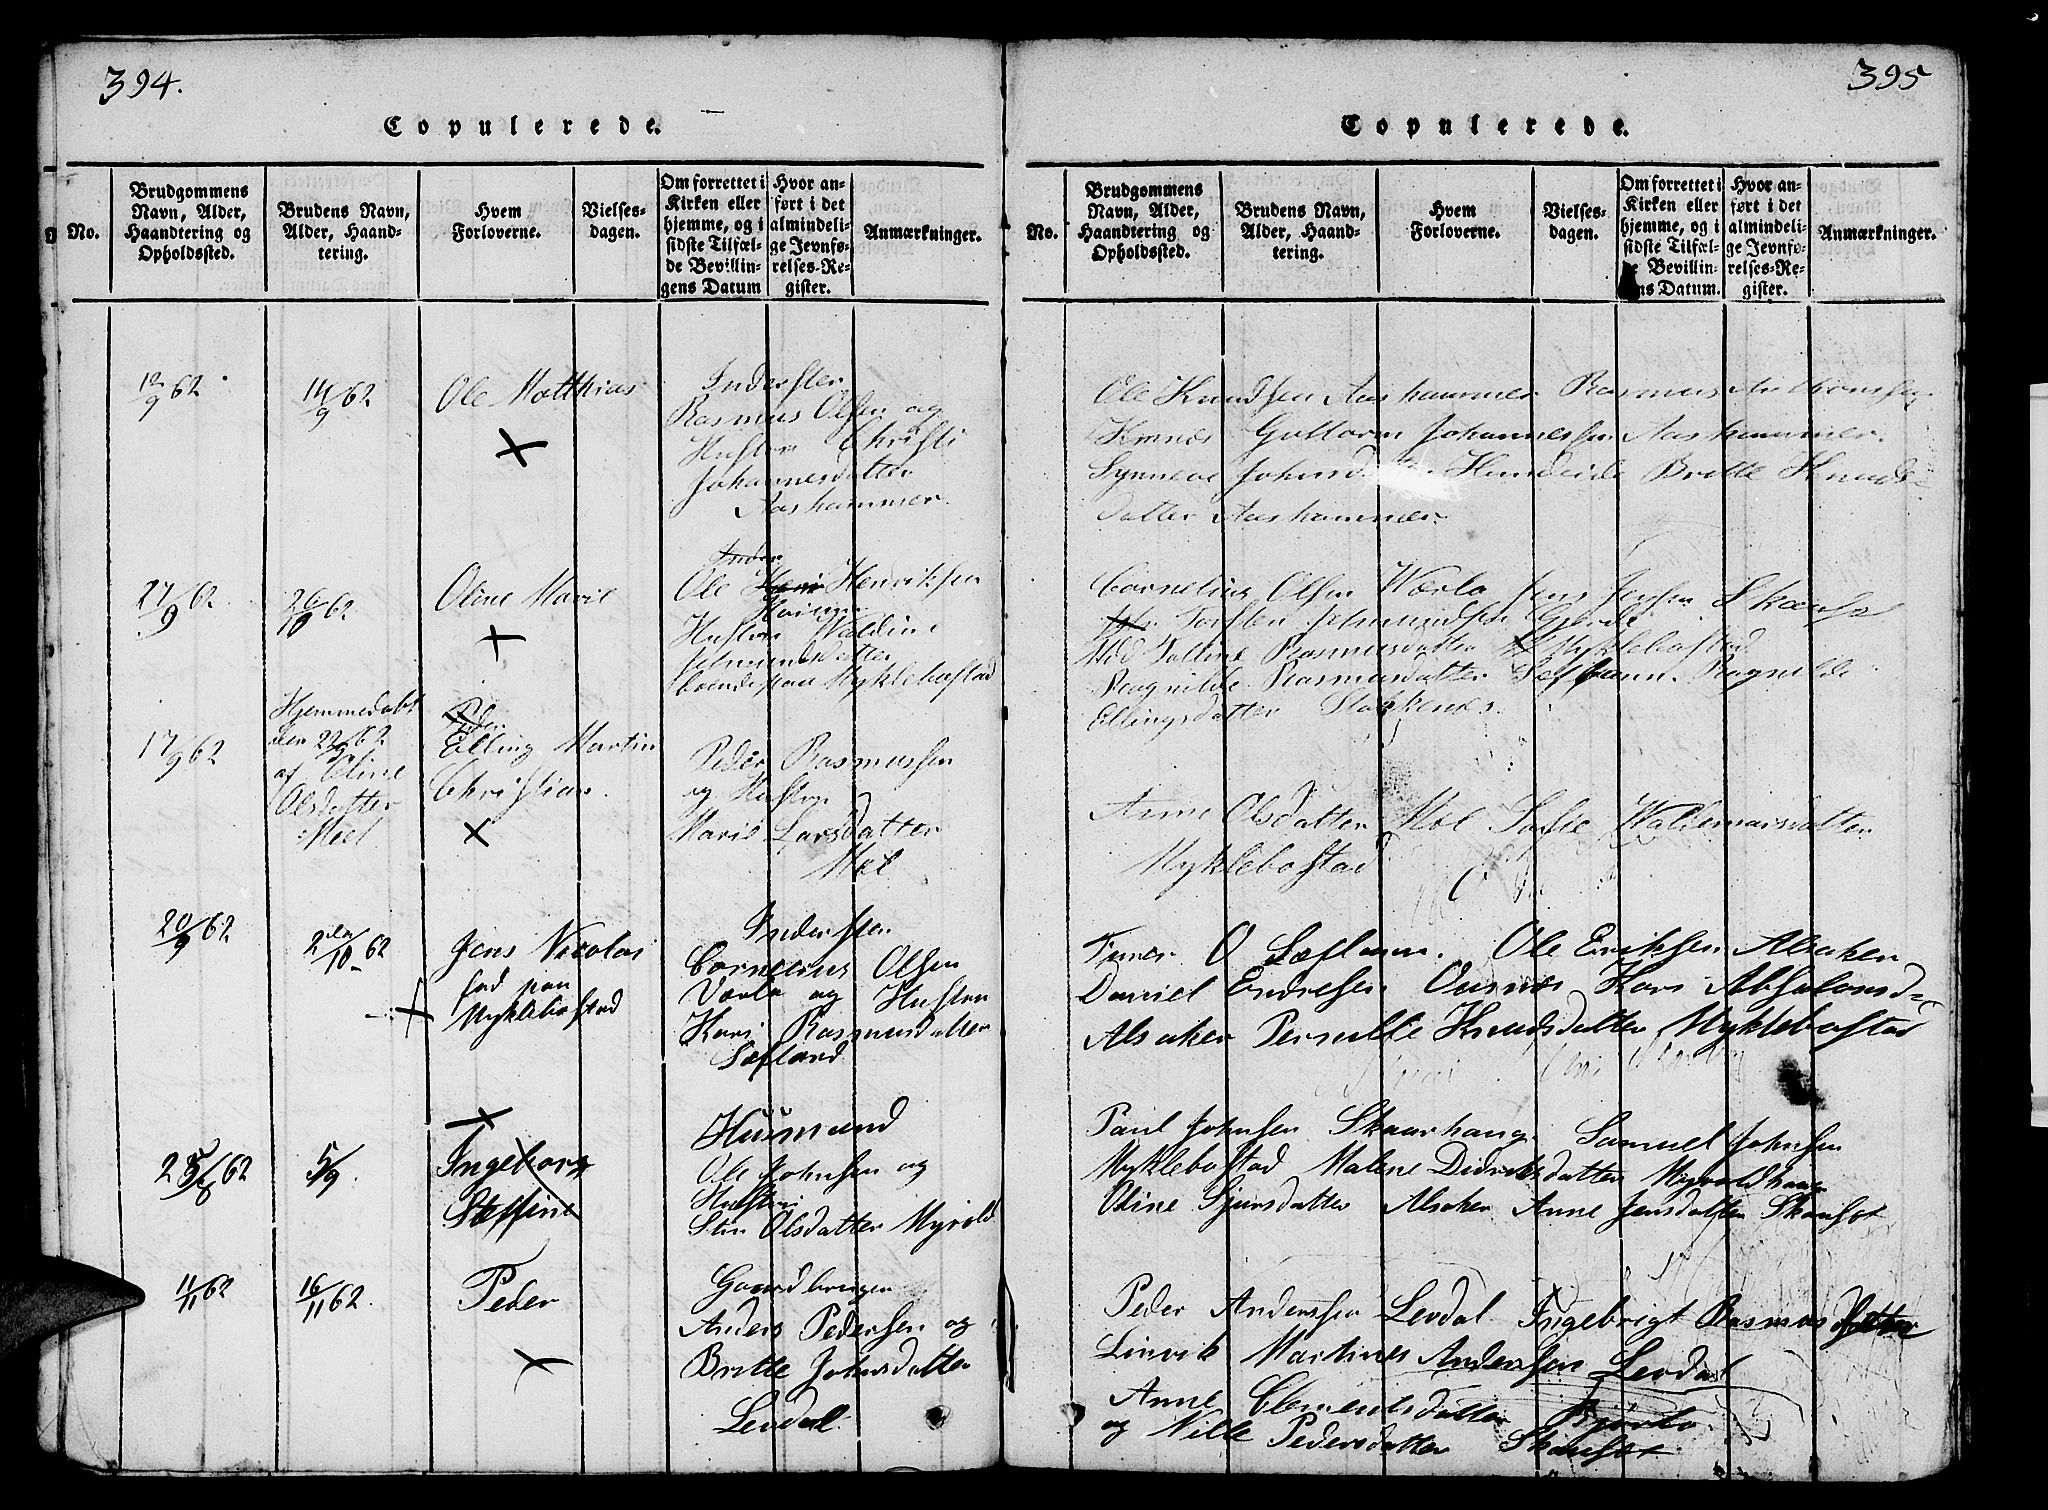 394.
Copulerede.
No.
Brudgommens Navn, Alder, Haandtering og Opholdssted.
Brudens Navn, Alder, Haandtering.
Hvem Forloverne.
Vielsesdagen.
Om forrettet i Kirken eller hjemme, og i sidste Tilfælde Bevillingens Datum
Hvor anført i det almindelige Jevnførelses-Register.
Anmærkninger.
12/9 62.
14/9 62
Ole Matthias
Inderster
Rasmus Olsen og
Hustru Christi
Johannesdatter
Aashammer.
27/9 62.
26/10 62
Oline Marie
Ole Henriksen
Hustru Valdine
datter
boende paa Myklebostad
17/9 62
Hjemmedøbt
den 22/9 62
af Eline
Olsdatter
Moel
Elling Martin
Christian.
Peder Rasmussen
og Hustru
Marie Larsdatter
Mol
20/9 62
2den/10 62
Jens Nicolai
fød paa
Myklebostad
Indersten
Cornelius Olsen
Værlo og Hustru
Kari Rasmusdatter
Sæfland
25/8 62
5/9.
Ingeborg
Steffine
Huusmand
Ole Johnsen og
Hustru
Olsdatter Myrold
11/11 62
16/11 62.
Peder
Gaardbruger
Anders Pedersen og
Britte Johnsdatter
Levdal
395
Copulerede.
No.
Brudgommens Navn, Alder, Haandtering og Opholdssted.
Brudens Navn, Alder, Haandtering.
Hvem Forloverne.
Vielsesdagen.
Om forrettet i Kirken eller hjemme, og i sidste Tilfælde Bevillingens Datum.
Hvor anført i det almindelige Jevnførelses-Register.
Anmærkninger.
Ole Knudsen Aashammer Rasmus Anthonsen
Guttorm Johannessen Aashammer.
Synneve Johnsdatter Hundeide Britte Knuds-
datter Aashammer.
Cornelius Olsen Værlo Jens Jensen
Torsten Gjerde
Rasmusdatter Myklebostad
Ragnilde Rasmusdatter Ragnilde
Ellingsdatter Stokkenes.
Anne Olsdatter Mol Sofie Waldemarsdatter
Myklebostad
O Sæfland. Ole Eriksen Alsaker
Daniel Endresen Ousnes Kari Absalonsd=
Alsaker Pernille Knudsdatter Myklebostad
Paul Johnsen Skaarhaug Samuel Johnsen
Myklebostad Malene Didriksdatter Myroldhaug
Oline Sjursdatter Alsaker Anne Jensdatter Skausøt
Peder Anderssen Levdal Ingebrigt Rasmus
Linvik Martines Andersen Levdal
Anne Clementsdatter Bjørlo
og Nille Pedersdatter Skausøt